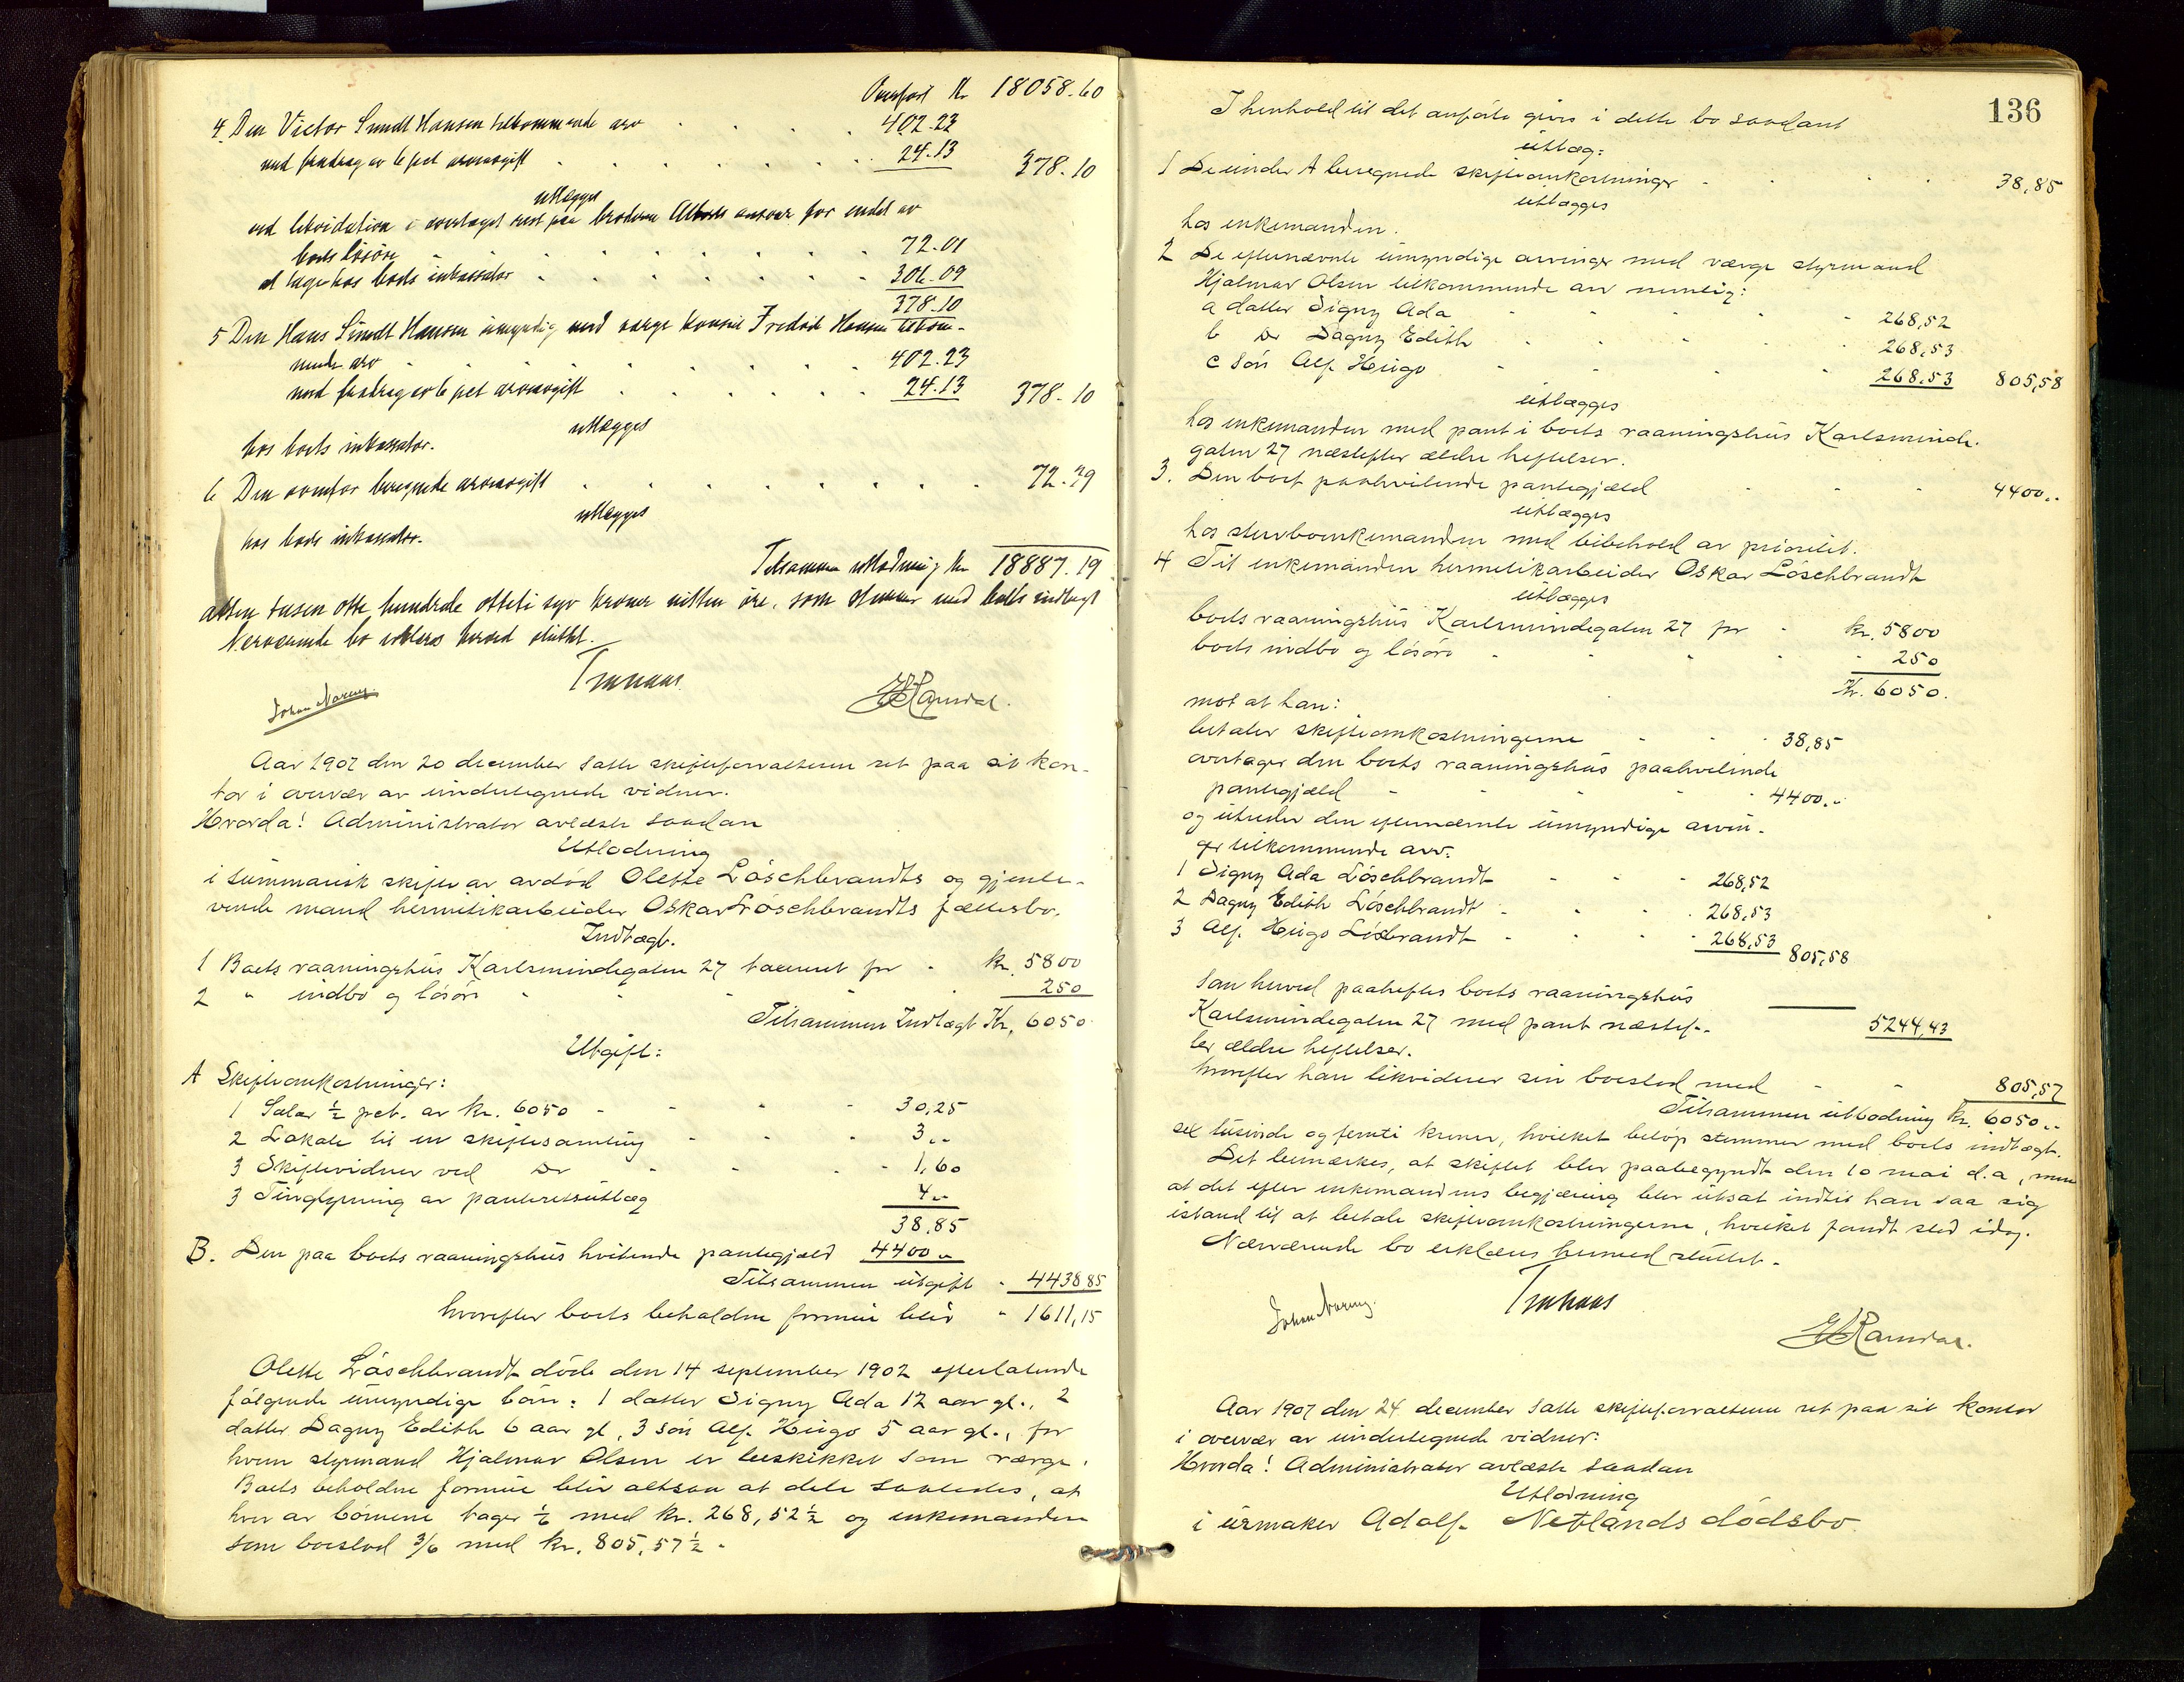 Overført Kr 18058.60
4. Den Victor Sundt Hansen tilkommende arv 402.23
med fradrag av 6 pct arveavgift 24.13 378.10
utlægges
ved likvidation i overtaget rest paa broderen Alberts ansvar for endel av
boets løsøre 72.01
at tage hos boets inkassator 306.09
378.10
5 Den Hans Sundt Hansen umyndig med værge konsul Fredrik Hansen tilkom-
mende arv 402.23
med fradrag av 6 pct arveavgift 24.13 378.10
utlægges
hos boets inkassator.
6 Den ovenfor beregnede arveavgift 72.39
utlægges
hos boets inkassator.
Tilsammen utlodning Kr 18887.19
atten tusen otte hundrede otteti syv kroner nitten øre, som stemmer med boets indtægt
Nærværende bo erklæres herved sluttet.
Aar 1907 den 20 december satte skifteforvalteren ret paa sit kon-
tor i overvær av undertegnede vidner.
Hvorda! Administrator avlæste saadan
Utlodning
i summarisk skifte av avdød Olette Löschbrandts og gjenle-
vende mand hermetikarbeider Oskar Löschbrandts fællesbo.
Indtægt.
1 Boets vaaningshus Karlsmindegaten 27 taxeret for kr. 5800
2 " indbo og løsøre 250
Tilsammen Indtægt Kr. 6050
Utgift:
A Skifteomkostninger:
1 Salær ½ pct. av kr. 6050 30,25
2 Lokale til en skiftesamling 3..
3 Skiftevidner ved Do 1,60
3 Tinglysning av panteretsutlæg 4..
38,85
B. Den paa boets vaaningshus hvilende pantegjæld 4400..
Tilsammen utgift 4438 85
hvorefter boets beholdne formue blir " 1611,15
Olette Löschbrandt døde den 14 september 1902 efterlatende
følgende umyndige børn: 1 datter Signy Ada 12 aar gl., 2
datter Dagny Edith 6 aar gl, 3 søn Alf Hugo 5 aar gl., for
hvem styrmand Hjalmar Olsen er beskikket som værge.
Boets beholdne formue blir altsaa at dele saaledes, at
hver av børnene tager 1/6 med kr. 268,52½ og enkemanden
som boeslod 3/6 med kr. 805,57½.
136
I henhold til det anførte gives i dette bo saadant
utlæg:
1 De under A beregnede skifteomkostninger 38,85
utlægges
hos enkemanden.
2 De efternævnte umyndige arvinger med værge styrmand
Hjalmar Olsen tilkommende arv nemlig:
a datter Signy Ada 268,52
b Do Dagny Edith 268,53
c Søn Alf Hugo 268,53 805,58
utlægges
hos enkemanden med pant i boets vaaningshus Karlsminde-
gaten 27 næstefter ældre heftelser.
3. Den boet paahvilende pantegjæld 4400..
utlægges
hos stervboenkemanden med bibehold av prioritet.
4 Til enkemanden hermetikarbeider Oskar Löschbrandt
utlægges
boets vaaningshus Karlsmindegaten 27 for kr. 5800
boets indbo og løsøre 250
Kr. 6050.
mot at han:
betaler skifteomkostningerne 38,85
overtager den boets vaaningshus paahvilende
pantegjæld 4400..
og utreder den efternævnte umyndige arvin-
ger tilkommende arv:
1 Signy Ada Löschbrandt 268,52
2 Dagny Edith Löschbrandt 268,53
3 Alf Hugo Löschbrandt 268,53 805,58
som herved paaheftes boets vaaningshus
Karlsmindegaten 27 med pant næstef- 5244,43
ter ældre heftelser.
hvorefter han likviderer sin boeslod med 805,57
Tilsammen utlodning kr. 6050..
sex tusinde og femti kroner, hvilket beløp stemmer med boets indtægt.
Det bemærkes, at skiftet blev paabegyndt den 10 mai d.a, men
at det efter enkemandens begjæring blev utsat indtil han saa sig
istand til at betale skifteomkostningerne, hvilket fandt sted idag.
Nærværende bo erklæres hermed sluttet.
Aar 1907 den 24 december satte skifteforvalteren ret paa sit kontor
i overvær av undertegnede vidner:
Hvorda! Administrator avlæste saadan
Utlodning
i urmaker Adolf Netlands dødsbo